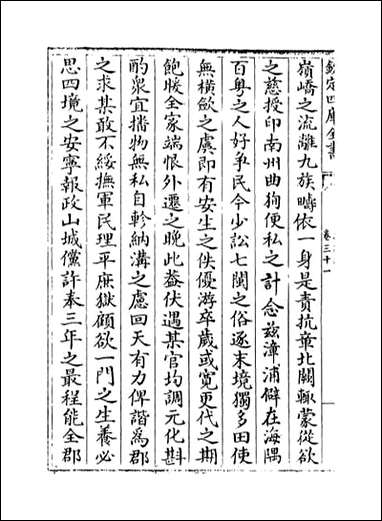 欽定四庫全書
卷三十一
嶺嶠之流離九族疇依一身是責抗章北闕輙蒙從欲
之慈授印南州曲狥便私之計念兹漳浦僻在海隅
百粤之人好爭民今少訟七閩之俗逐末境獨多田使
無橫斂之虞即有安生之佚優游卒歲或寛更代之期
飽暖全家端恨外遷之晚此葢伏遇某官均調元化斟
酌衆宜播物無私自軫納溝之慮回天有力俾諧為郡
之求某敢不綏撫軍民理平庶獄顧欲一門之生養必
思四境之安寧報政山城儻許奏三年之最程能全郡